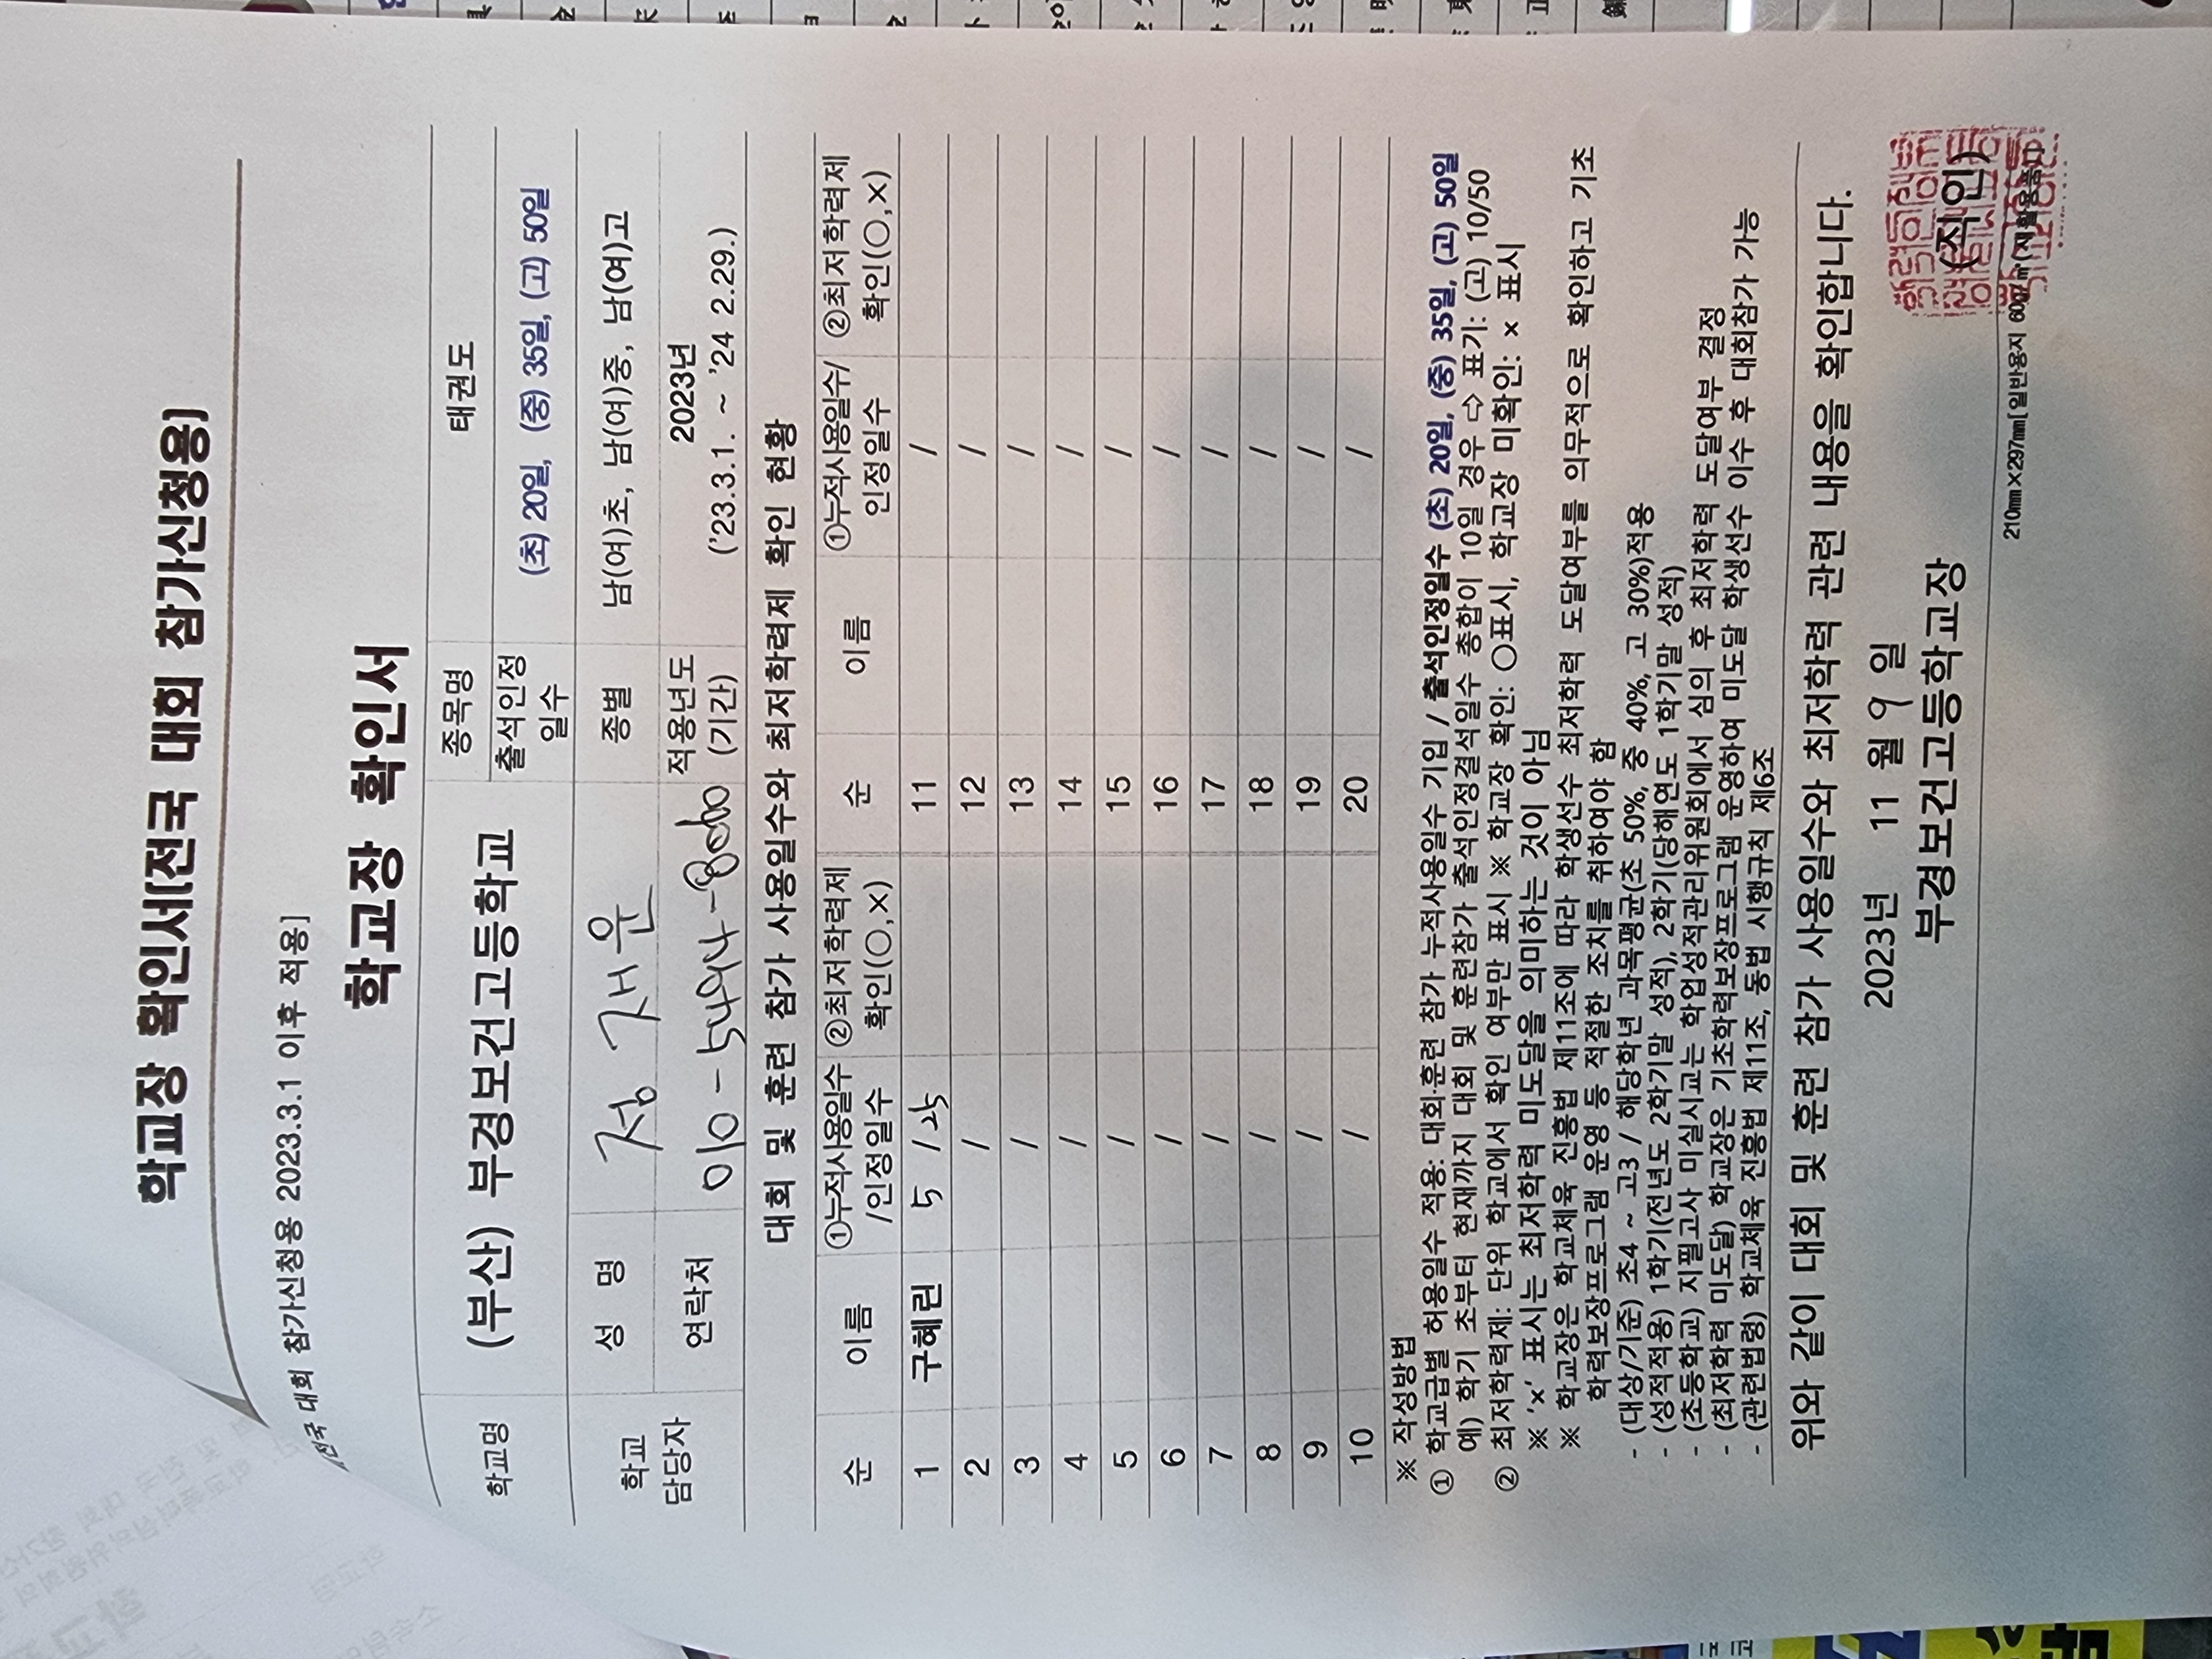 학교장 확인서[전국 대회 참가신청용]
[전국 대회 참가신청용 2023.3.1 이후 적용]
학교장 확인서
학교명 (부산) 부경보건고등학교 종목명 태권도
출석인정 일수 (초) 20일, (중) 35일, (고) 50일
학교 담당자 성 명 정재운 종별 남(여)초, 남(여)중, 남(여)고
연락처 010-5494- 적용년도 (기간) 2023년 ('23.3.1. ~ '24 2.29.)
대회 및 훈련 참가 사용일수와 최저학력제 확인 현황
순 이름 ①누적사용일수/인정일수 ②최저학력제 확인(○,×) 순 이름 ①누적사용일수/인정일수 ②최저학력제 확인(○,×)
1 구혜린 5 /25 11 /
2 / 12 /
3 / 13 /
4 / 14 /
5 / 15 /
6 / 16 /
7 / 17 /
8 / 18 /
9 / 19 /
10 / 20 /
※ 작성방법
① 학교급별 허용일수 적용: 대회·훈련 참가 누적사용일수 기입 / 출석인정일수 (초) 20일, (중) 35일, (고) 50일
예) 학기 초부터 현재까지 대회 및 훈련참가 출석인정결석일수 총합이 10일 경우 ⇨ 표기: (고) 10/50
② 최저학력제: 단위 학교에서 확인 여부만 표시 ※ 학교장 확인: ○표시, 학교장 미확인: × 표시
※ '×' 표시는 최저학력 미도달을 의미하는 것이 아님
※ 학교장은 학교체육 진흥법 제11조에 따라 학생선수 최저학력 도달여부를 의무적으로 확인하고 기초
학력보장프로그램 운영 등 적절한 조치를 취하여야 함
- (대상/기준) 초4 ~ 고3 / 해당학년 과목평균(초 50%, 중 40%, 고 30%)적용
- (성적적용) 1학기(전년도 2학기말 성적), 2학기(당해연도 1학기말 성적)
- (초등학교) 지필고사 미실시교는 학업성적관리위원회에서 심의 후 최저학력 도달여부 결정
- (최저학력 미도달) 학교장은 기초학력보장프로그램 운영하여 미도달 학생선수 이수 후 대회참가 가능
- (관련법령) 학교체육 진흥법 제11조, 동법 시행규칙 제6조
위와 같이 대회 및 훈련 참가 사용일수와 최저학력 관련 내용을 확인합니다.
2023년 11 월 9 일
부경보건고등학교장 (직인)
210㎜×297㎜[일반용지 60g/㎡(재활용품)]